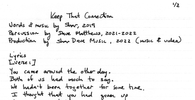 1/2
Keep That Connection
Words & music by Shor, 2019
Percussion by Dave Matthews, 2021-2022
Production by Shor Dave Music, 2022 (music & video)
Lyrics
[Verse 1]
You came around the other day.
Both of us had much to say.
We hadn't been together for some time.
I thought that you had given up